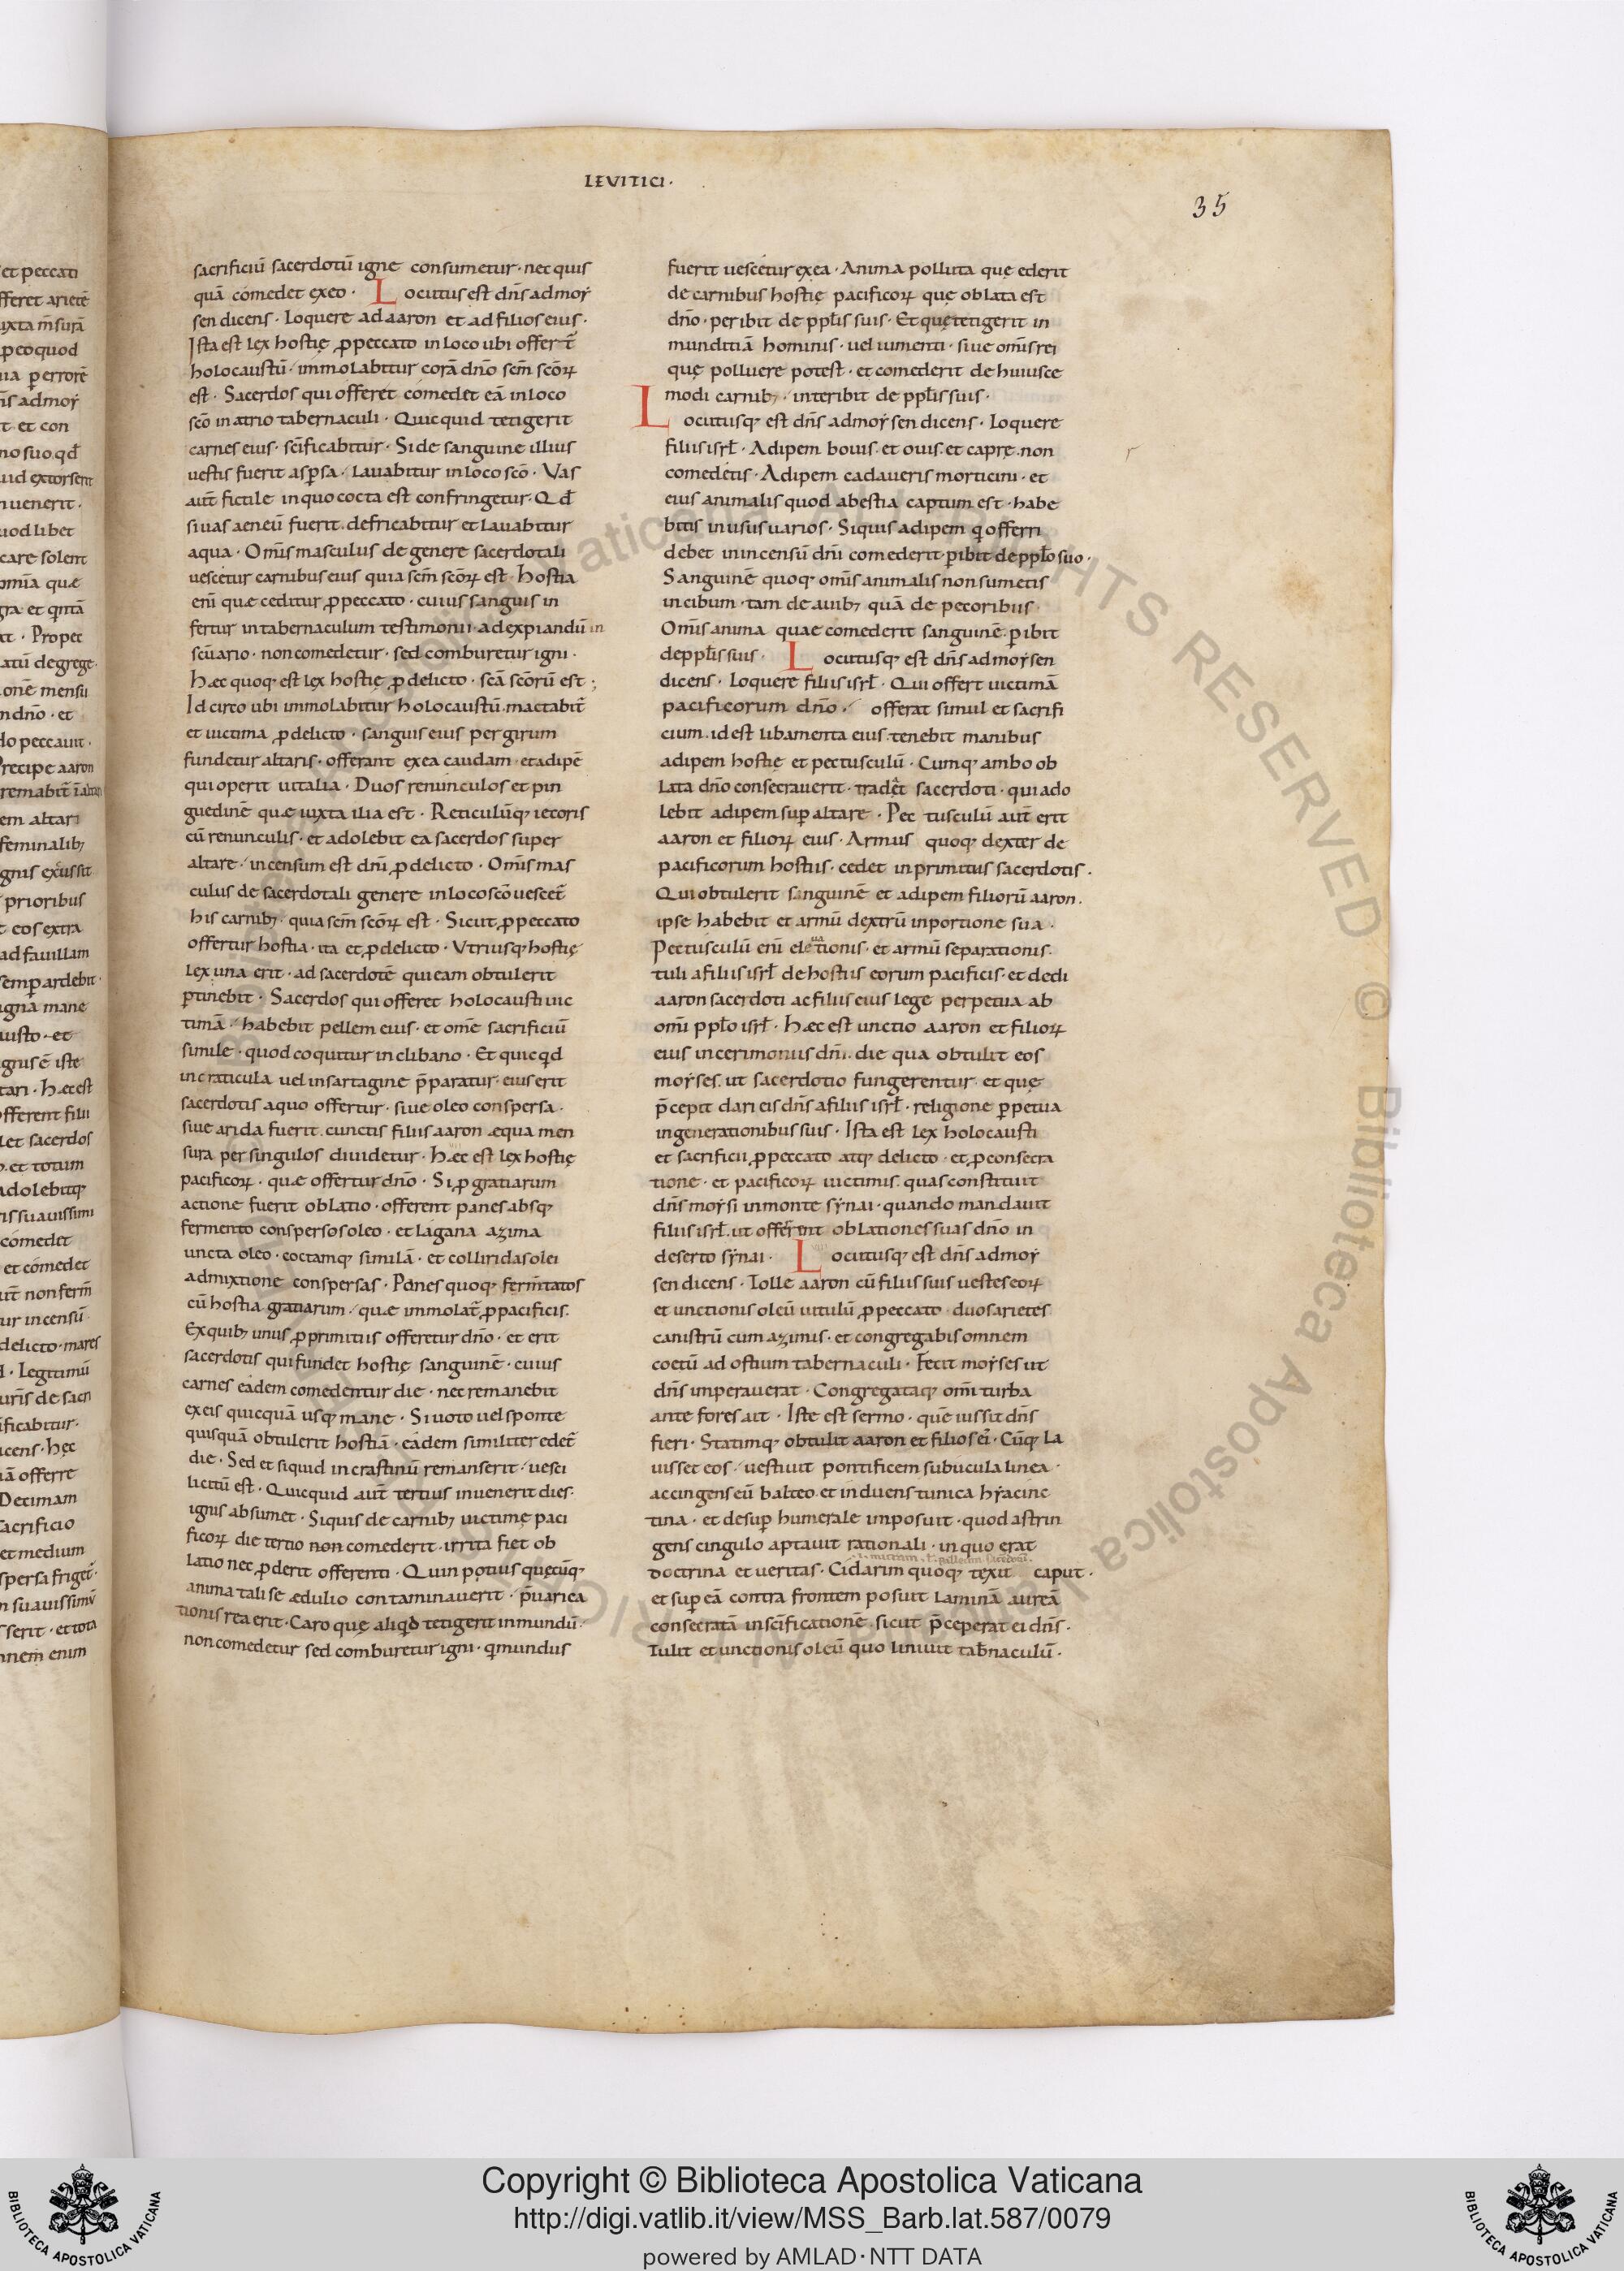 LEVITICI·
35
sacrificiū sacerdotū igne consumetur· nec quis
quā comedet ex eo· Locutus est dn̄s ad moẏ
sen dicens· Loquere ad aaron et ad filios eius·
Ista est lex hostię ꝓ peccato in loco ubi offert̄
holocaustū· immolabitur corā dn̄o sc̄m sc̄oꝝ
est· Sacerdos qui offeret comedet eā in loco
sc̄o in atrio tabernaculi· Quicquid tetigerit
carnes eius· sc̄ificabitur· Si de sanguine illius
uestis fuerit asꝑsa· lauabitur in loco sc̄o· Vas
aut̄ fictile in quo cocta est confringetur· Qd̄
si uas aeneū fuerit· defricabitur et lauabitur
aqua· Om̄is masculus de genere sacerdotali
uescetur carnibus eius quia sc̄m sc̄oꝝ est· Hostia
eni quæ ceditur ꝓ peccato· cuius sanguis in
fertur in tabernaculum testimonii· ad expiandū in
sc̄uario· non comedetur· sed comburetur igni·
Hæc quoqꝫ est lex hostię ꝓ delicto· sc̄a sc̄orū est;
Idcirco ubi immolabitur holocaustū· mactabit̄
et uictima ꝓ delicto· sanguis eius per girum
fundetur altaris· offerant ex ea caudam· et adipē
qui operit uitalia· Duos renunculos et pin
guedinē quæ iuxta ilia est· Reticulūqꝫ iecoris
cū renunculis· et adolebit ea sacerdos super
altare· incensum est dn̄i ꝓ delicto· Om̄is mas
culus de sacerdotali genere in loco sc̄o uescet̄
his carnibꝫ· quia sc̄m sc̄oꝝ est· Sicut ꝓ peccato
offertur hostia· ita et ꝓ delicto· Vtriusqꝫ hostię
lex una erit· ad sacerdotē qui eam obtulerit
ꝑtinebit· Sacerdos qui offeret holocausti uic
timā· habebit pellem eius· et om̄e sacrificiū
simile· quod coquitur in clibano· Et quicqd
in craticula uel in sartagine p̄paratur· eius erit
sacerdotis a quo offertur· siue oleo conspersa·
siue arida fuerit· cunctis filiis aaron æqua men
sura per singulos diuidetur· Hæc est lex hostię
pacificoꝝ· quæ offertur dn̄o· Si ꝓ gratiarum
actione fuerit oblatio· offerent panes absqꝫ
fermento conspersos oleo· et lagana azima
uncta oleo· coctamqꝫ similā· et colliridas olei
admixtione conspersas· Panes quoqꝫ ferm̄tatos
cū hostia gratiarum· quæ immolat̄ ꝓ pacificis·
Ex quibꝫ unus ꝓ primitiis offeretur dn̄o· et erit
sacerdotis qui fundet hostię sanguinē· cuius
carnes eadem comedentur die· nec remanebit
ex eis quicquā usqꝫ mane· Si uoto uel sponte
quisquā obtulerit hostiā· eadem similiter edet̄
die· Sed et si quid in crastinū remanserit· uesci
licitū est· Quicquid aut̄ tertius inuenerit dies·
ignis absumet· Siquis de carnibꝫ uictimę paci
ficoꝝ die tertio non comederit· irrita fiet ob
latio nec ꝓderit offerenti· Quin potius quęcūqꝫ
anima tali se ædulio contaminauerit· p̄uarica
tionis rea erit· Caro quę aliqd tetigerit inmundū·
non comedetur sed comburetur igni· q mundus
fuerit uescetur ex ea· Anima polluta quę ederit
de carnibus hostię pacificoꝝ quę oblata est
dn̄o· peribit de ppl̄is suis· Et quę tetigerit in
munditiā hominis· uel iumenti· siue om̄is rei
quę polluere potest· et comederit de huiusce
modi carnibꝫ· interibit de ppl̄is suis·
Locutusqꝫ est dn̄s ad moẏsen dicens· Loquere
filiis isrl̄· Adipem bouis· et ouis· et caprę· non
comedetis· Adipem cadaueris morticini· et
eius animalis quod a bestia captum est· habe
bitis in usus uarios· Siquis adipem q offerri
debet in incensū dn̄i comederit· ꝑibit de ppl̄o suo·
Sanguinē quoqꝫ om̄is animalis non sumetis
in cibum· tam de auibꝫ quā de pecoribus·
Om̄is anima quae comederit sanguinē· ꝑibit
de ppl̄is suis· Locutusqꝫ est dn̄s ad moẏsen
dicens· Loquere filiis isrl̄· Qui offert uictimā
pacificorum dn̄o· offerat simul et sacrifi
cium· id est libamenta eius· tenebit manibus
adipem hostię et pectusculū· Cumqꝫ ambo ob
lata dn̄o consecrauerit· tradet sacerdoti· qui ado
lebit adipem suꝑ altare· Pec tusculū aut̄ erit
aaron et filioꝝ eius· Armus quoqꝫ dexter de
pacificorum hostiis· cedet in primitias sacerdotis·
Qui obtulerit sanguinē et adipem filiorū aaron·
ipse habebit et armū dextrū in portione sua·
Pectusculū eni eleuationis· et armū separationis·
tuli a filiis isrl̄ de hostiis eorum pacificis· et dedi
aaron sacerdoti ac filiis eius lege perpetua ab
om̄i ppl̄o isrl̄· Hæc est unctio aaron et filioꝝ
eius in cerimoniis dn̄i· die qua obtulit eos
moẏses· ut sacerdotio fungerentur· et quę
p̄cepit dari eis dn̄s a filiis isrl̄· religione ꝑpetua
in generationibus suis· Ista est lex holocausti
et sacrificii ꝓ peccato atqꝫ delicto· et ꝓ consecra
tione· et pacificoꝝ uictimis· quas constituit
dn̄s moẏsi in monte sẏnai· quando mandauit
filiis isrl̄· ut offerrent oblationes suas dn̄o in
deserto sẏnai· Locutusqꝫ est dn̄s ad moẏ
sen dicens· Tolle aaron cū filiis suis uestes eoꝝ
et unctionis oleū uitulū ꝓ peccato· duos arietes
canistrū cum azimis· et congregabis omnem
coetū ad ostium tabernaculi· Fecit moẏses ut
dn̄s imperauerat· Congregataqꝫ om̄i turba
ante fores ait· Iste est sermo· quē iussit dn̄s
fieri· Statimqꝫ obtulit aaron et filios ei· Cūqꝫ la
uisset eos· uestiuit pontificem subucula linea·
accingens eū balteo· et induens tunica hẏacinc
tina· et desuꝑ humerale imposuit· quod astrin
gens cingulo aptauit rationali· in quo erat
doctrina et ueritas· Cidarim quoqꝫ texit caput·
et suꝑ eā contra frontem posuit laminā aureā
consecratā in sc̄ificationē· sicut p̄ceperat ei dn̄s·
Tulit et unctionis oleū quo liniuit tab̄naculū·
Copyright © Biblioteca Apostolica Vaticana
http://digi.vatlib.it/view/MSS_Barb.lat.587/0079
powered by AMLAD·NTT DATA
BIBLIOTECA APOSTOLICA VATICANA
BIBLIOTECA APOSTOLICA VATICANA